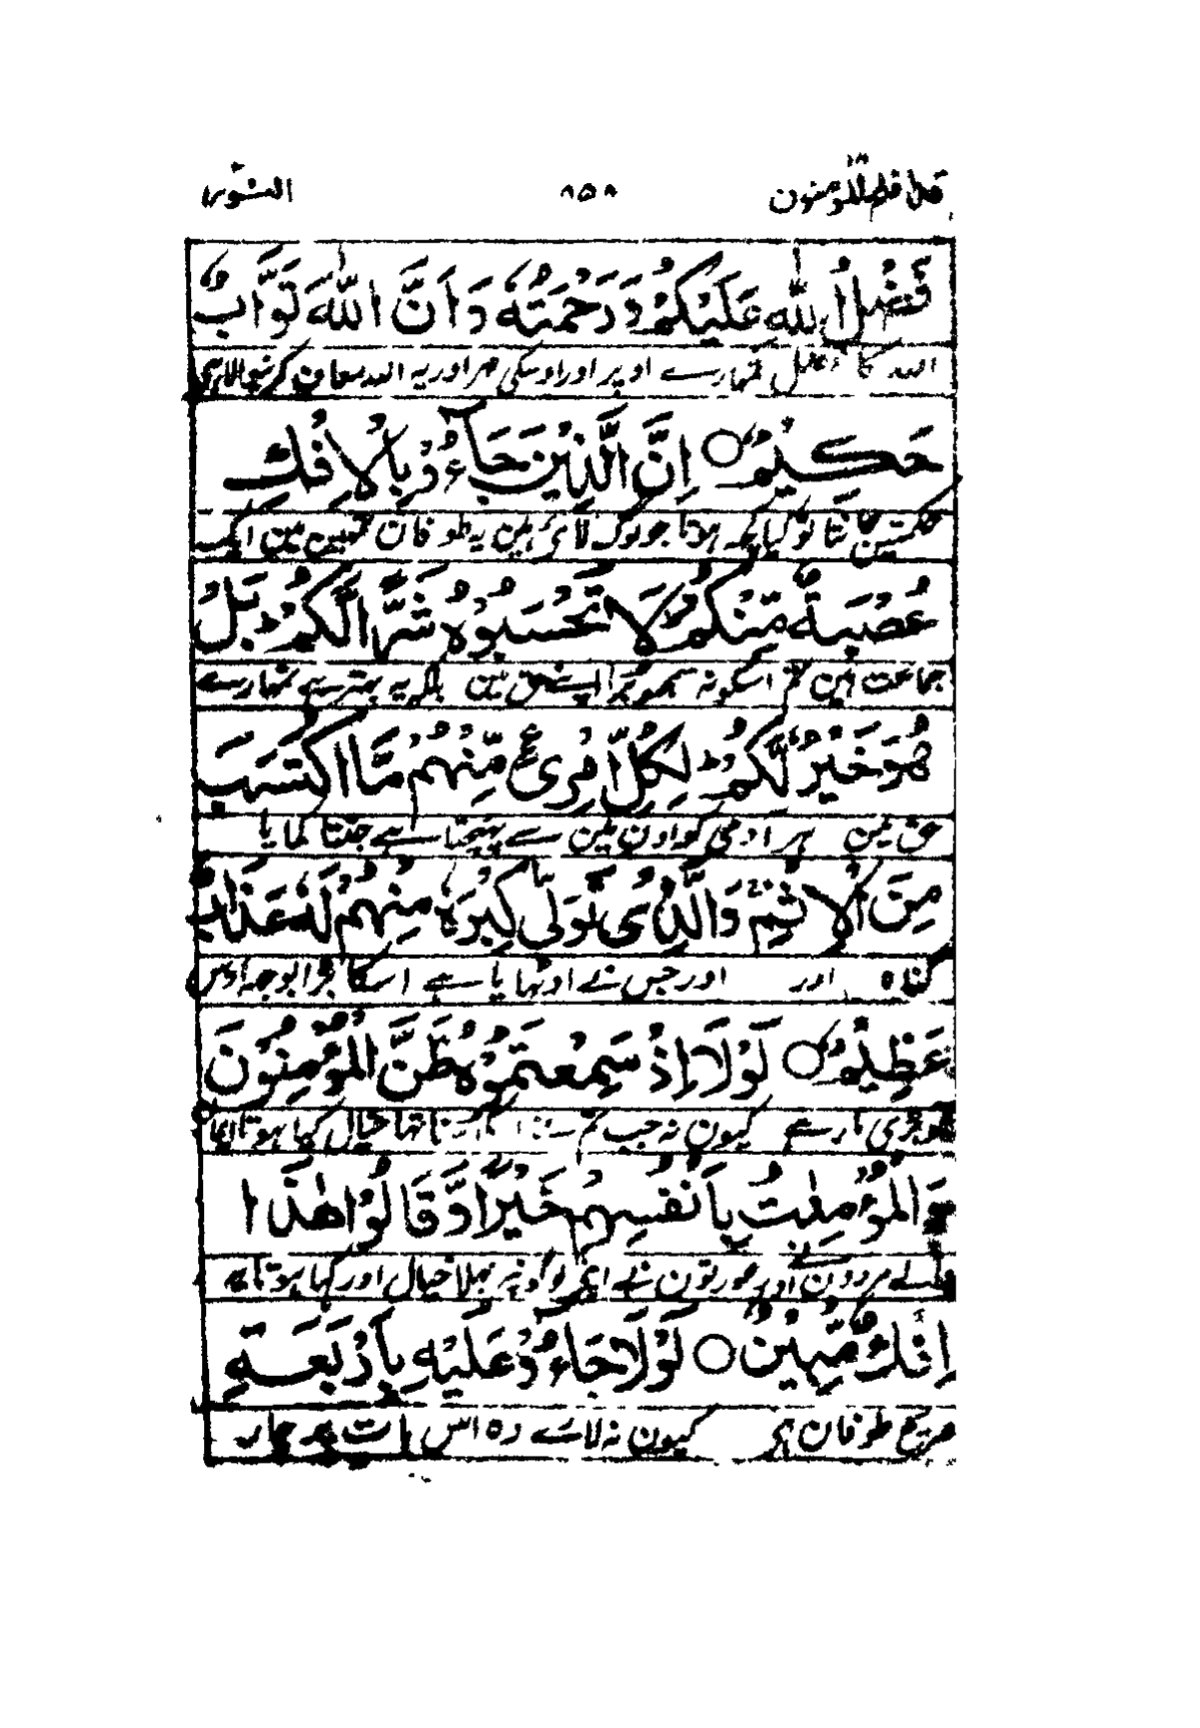 قد افلح المؤمنون ۸۵۸ النور
فَضْلُ اللّٰهِ عَلَيْكُمْ وَرَحْمَتُهٗ وَاَنَّ اللّٰهَ تَوَّابٌ
اللہ کا فضل تمہارے اوپر اور اوسکی مہر اور یہ اللہ معاف کرنیوالا ہی
حَكِيْمٌ ○ اِنَّ الَّذِيْنَ جَآءُوْ بِالْاِفْكِ
حکمتین جانتا تو کیا کچھ ہوتا جو لوگ لائے ہین یہ طوفان تمہین مین ایک
عُصْبَةٌ مِّنْكُمْ لَا تَحْسَبُوْهُ شَرًّا لَّكُمْ بَلْ
جماعت ہین تم اسکو نہ سمجھو برا اپنے حق مین بلکہ یہ بہتر ہے تمہارے
هُوَ خَيْرٌ لَّكُمْ لِكُلِّ امْرِئٍ مِّنْهُمْ مَّا اكْتَسَبَ
حق مین ہر آدمی کو اون مین سے پہنچتا ہے جتنا کمایا
مِنَ الْاِثْمِ وَالَّذِيْ تَوَلّٰى كِبْرَهٗ مِنْهُمْ لَهٗ عَذَابٌ
گناہ اور اور جس نے اوٹہایا ہے اسکا بڑا بوجھ
عَظِيْمٌ ○ لَوْلَا اِذْ سَمِعْتُمُوْهُ ظَنَّ الْمُؤْمِنُوْنَ
بڑی مار ہے کیون نہ جب تم نے سنا تہا خیال کیا ہوتا
وَالْمُؤْمِنٰتُ بِاَنْفُسِهِمْ خَيْرًا وَّقَالُوْا هٰذَا
والے مردون اور عورتون نے اپنے لوگونپہ بہلا خیال اور کہا ہوتا یہ
اِفْكٌ مُّبِيْنٌ ○ لَوْلَا جَآءُوْ عَلَيْهِ بِاَرْبَعَةِ
صریح طوفان ہی کیون نہ لائے وہ اس بات پر چار